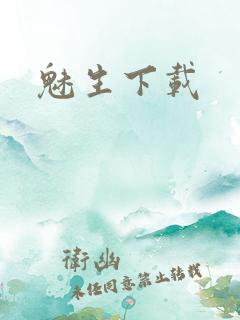 魅生下載
衛幽
未經同意禁止轉載